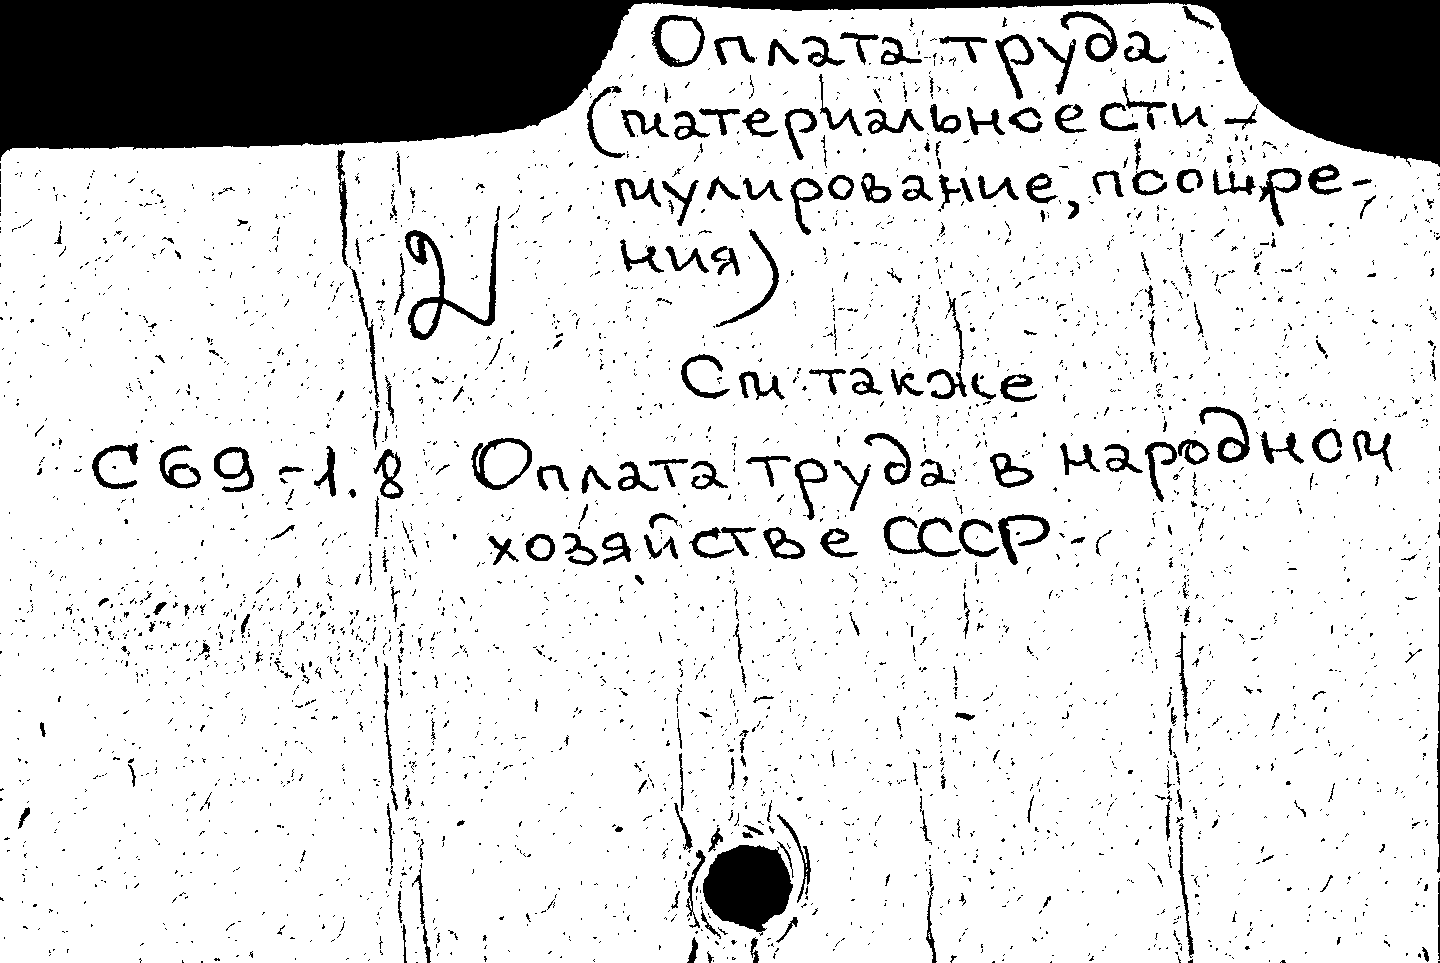 Оплата труда
(материальное сти-
мулирование, поощре-
ния)
2
См также
С69-1.8 Оплата труда в народном
хозяйстве СССР